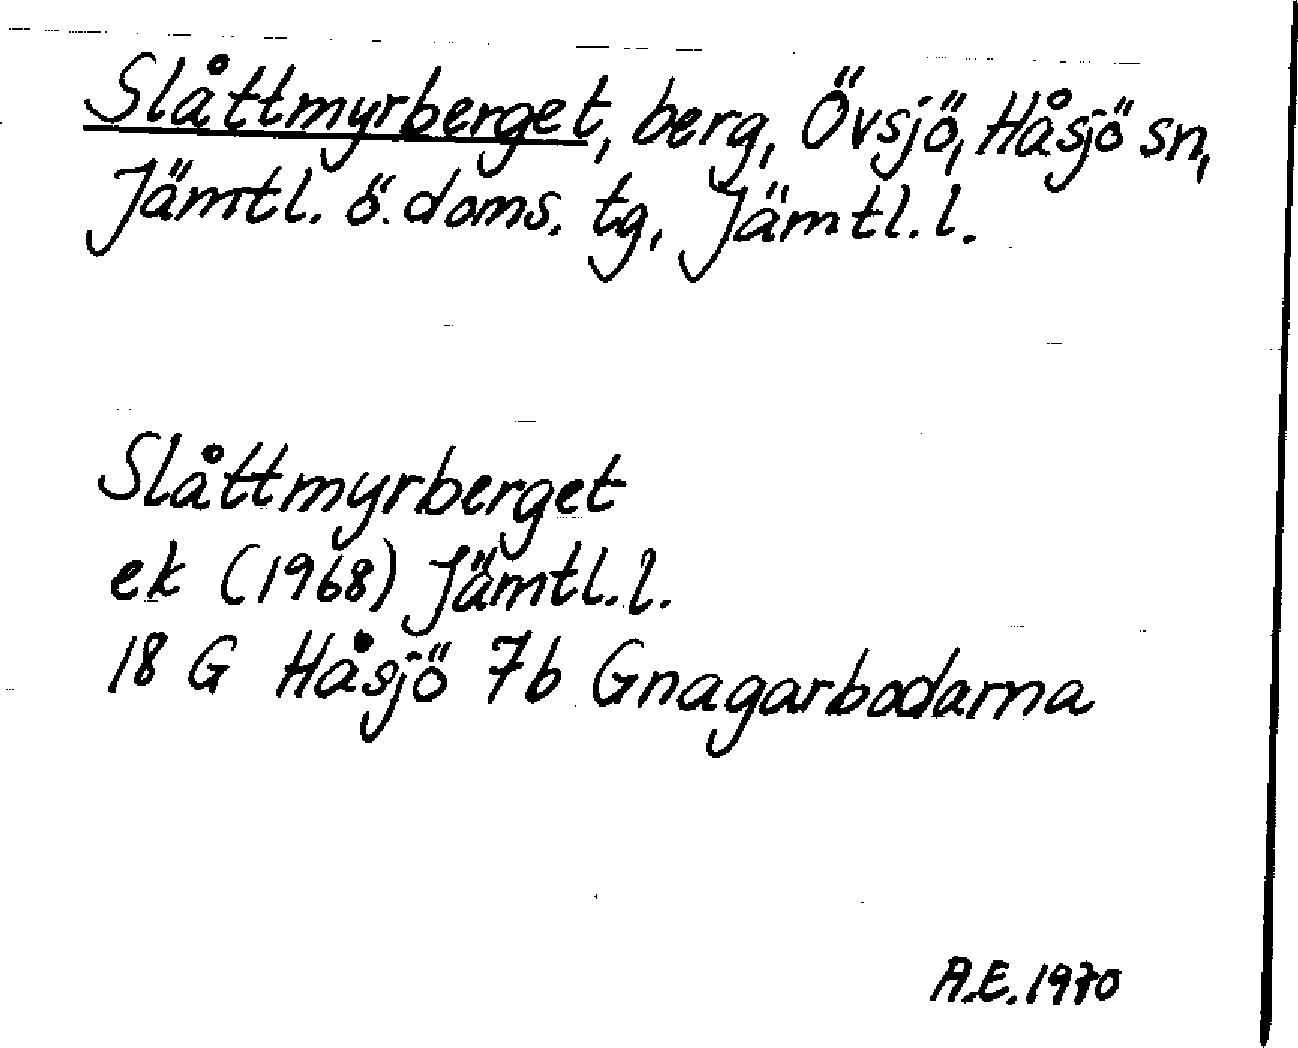 Slåttmyrberget, berg, Övsjö, Håsjö sn,
Jämtl. ö. doms. tg, Jämtl. l.
Slåttmyrberget
ek (1968) Jämtl. l.
18 G Håsjö 7b Gnagarbodarna
A.E. 1970